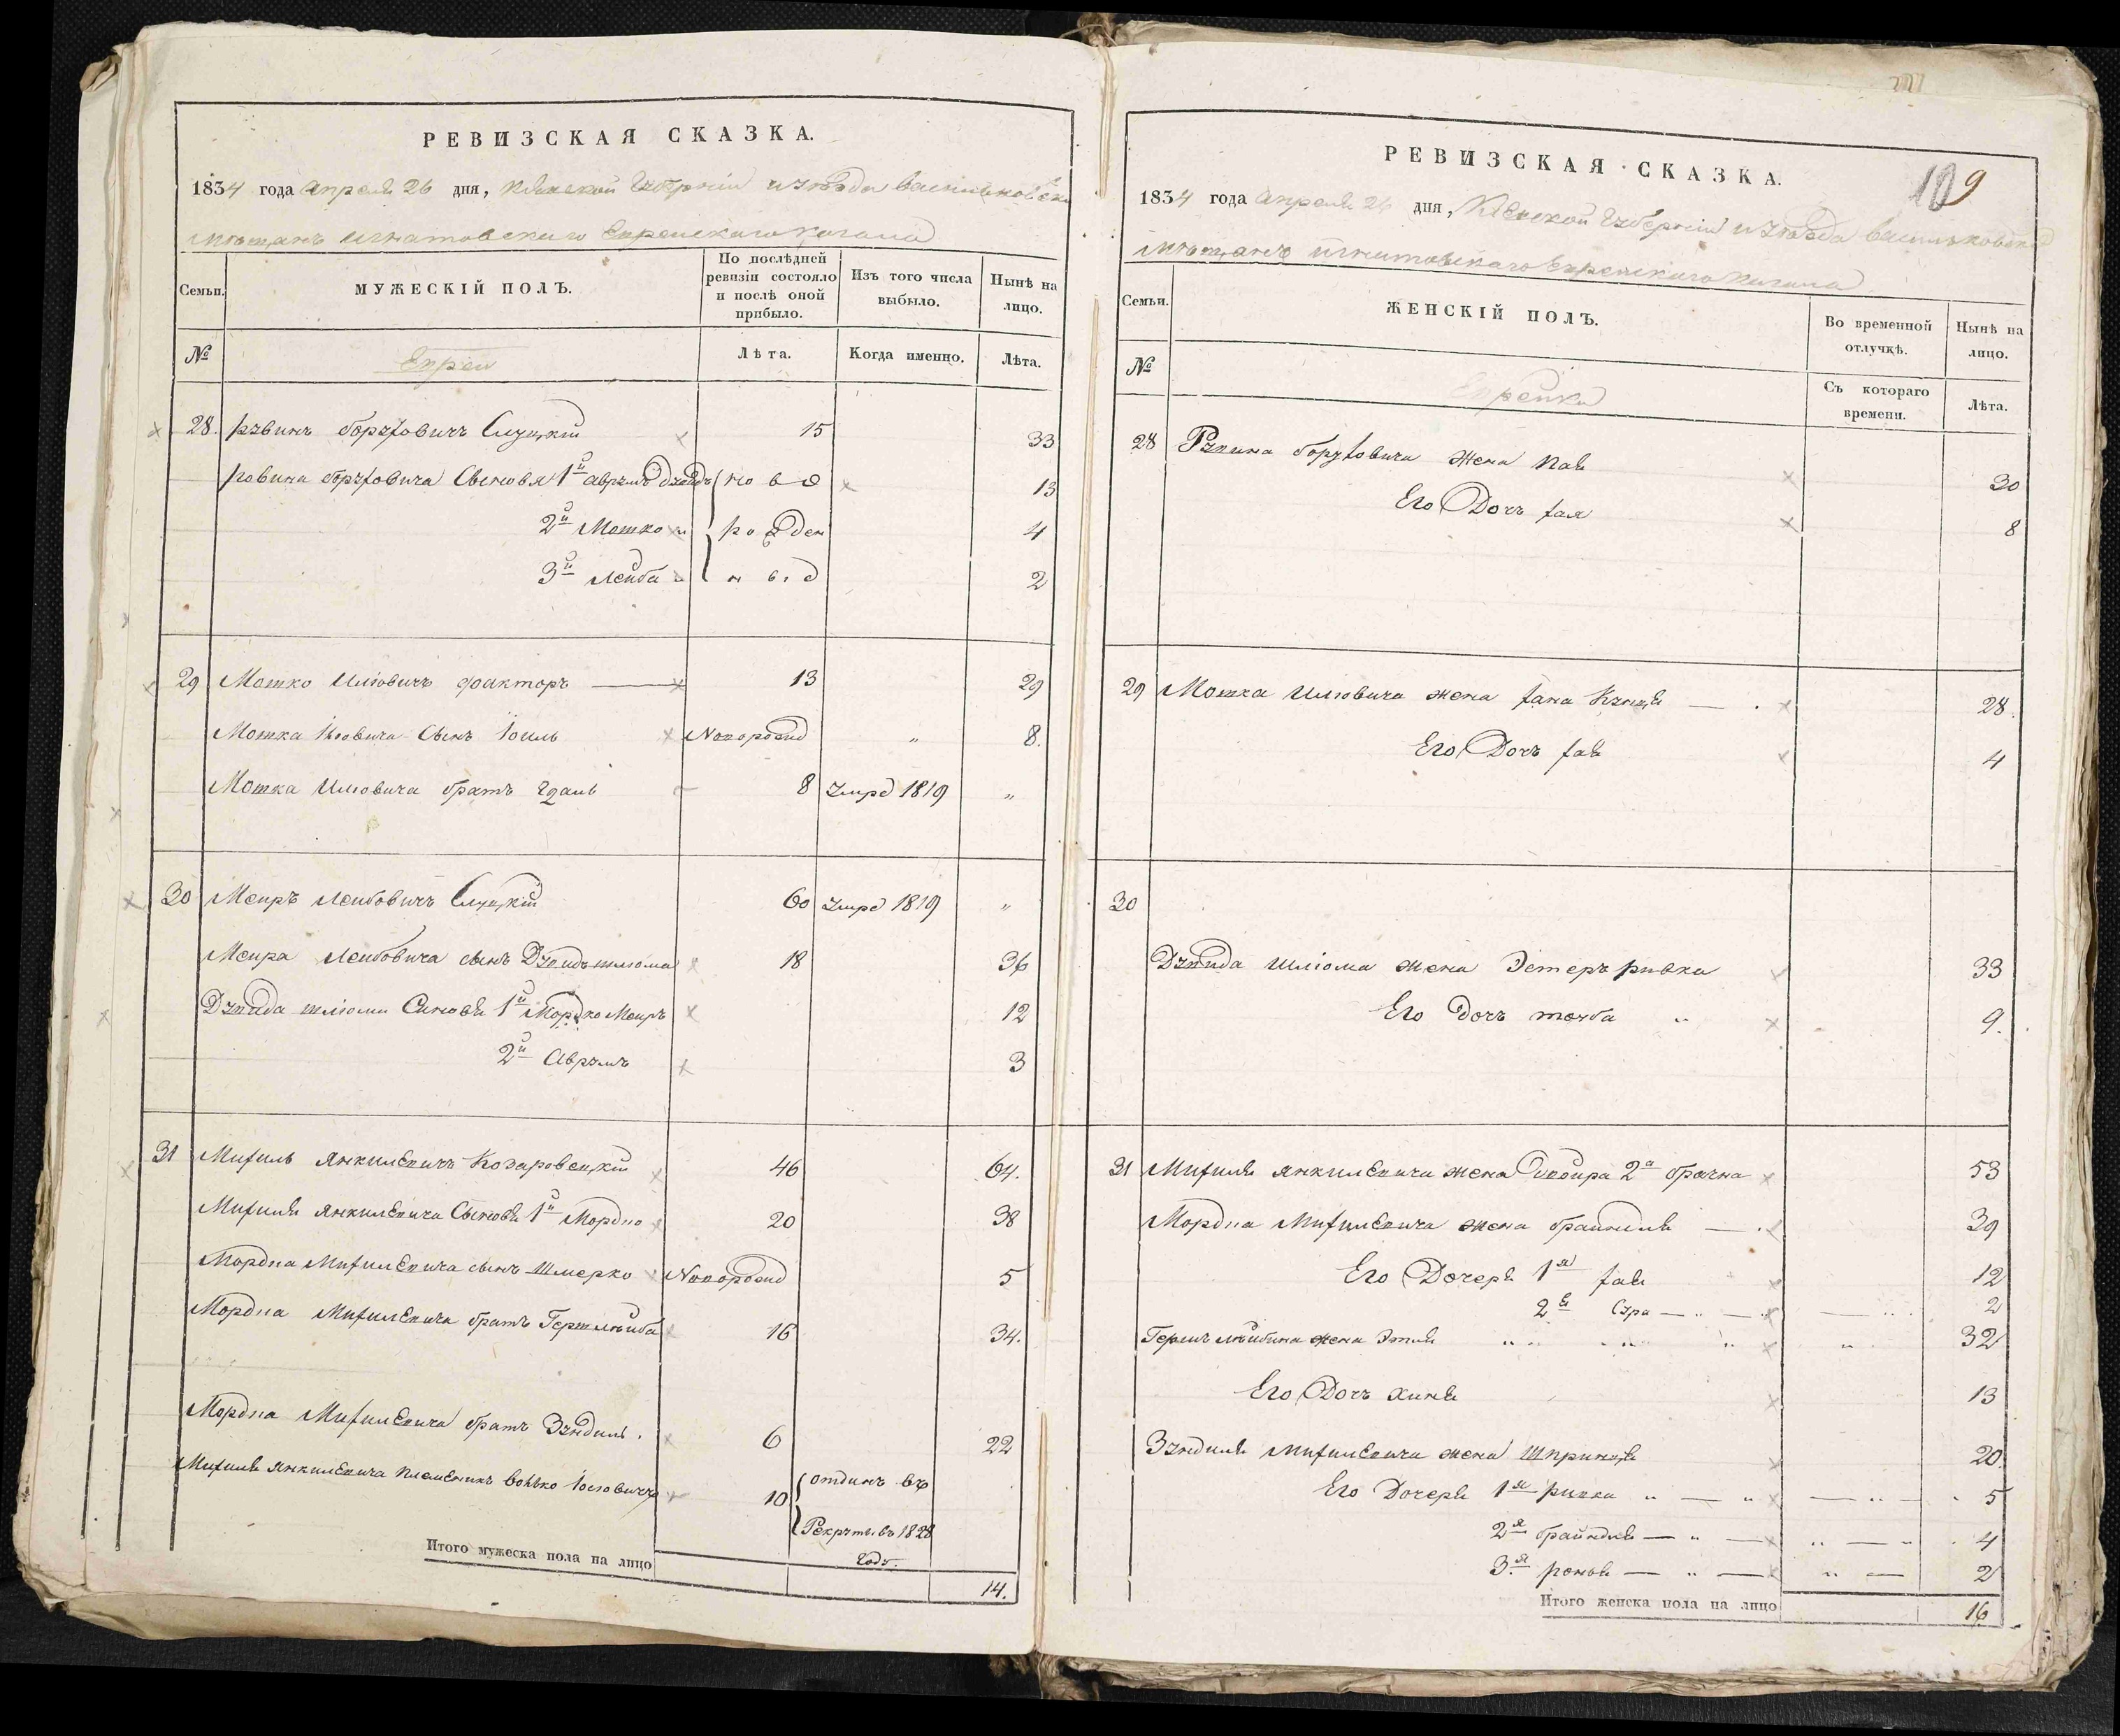 РЕВИЗСКАЯ СКАЗКА.
1834 года Апреля 26 дня, Кіевской Губерніи и уѣзда Васильковска
мѣщанъ Игнатовскаго Еврейскаго Кагала
Семьи.
МУЖЕСКІЙ ПОЛЪ.
По послѣдней ревизіи состояло и послѣ оной прибыло.
Изъ того числа выбыло.
Нынѣ на лицо.
№
Евреи
Лѣта.
Когда именно.
Лѣта.
28. Рувинъ Борухович Слуцкій 15 33
Рувина Боруховича Сыновя 1й Аврумъ Дувидъ ново 13
2й Мотко рожден 4
3й Лейба 2
29 Мотко Шліовичъ факторъ 13 29
Мотка Шліовича Сынъ Іоиль Новорожд „ 8.
Мотка Шліовича братъ 8 Умрѣ 1819 „
30 Меиръ Лейбовичъ Слуцкій 60 Умрѣ 1819 „
Меира Лейбовича сынъ Дувидъ шліома 18 36
Дувида шліоми Синовя 1й Мордко Меиръ 12
2й Аврумъ 3
31 Михиль Янкилевичъ Кодаровецкій 46 64.
Михиля Янкилевича Сыновя 1й Мордко 20 38
Мордка Михилевича сынъ Шмерко Новорожд 5
Мордка Михилевича братъ Гершлейба 16 34.
Мордка Михилевича братъ Зундиль. 6 22
Михиля Янкилевича племеникъ Волько Іосіовичъ 10 отдинъ въ
Рекруты въ 1828
году.
Итого мужеска пола на лицо 14.
РЕВИЗСКАЯ СКАЗКА.
109
1834 года Апреля 26 дня, Кіевской Губерніи и уѣзда Васильковска
мѣщанъ Игнатовскаго Еврейскаго Кагала
Семьи.
ЖЕНСКІЙ ПОЛЪ.
Во временной отлучкѣ.
Нынѣ на лицо.
№
Еврейки
Съ котораго времени.
Лѣта.
28 Рувина Боруховича Жена 30
Его Дочъ хая 8
29 Мотка Шліовича жена хана 28.
Его Дочъ хая 4
30
Дувида Шліома жена Эстеръ ривка 33
Его дочъ тойба „ 9.
31 Михиля Янкилевича жена Двойра 2а брачна 53
Мордка Михилевича жена брайндля 39
Его Дочеря 1я хая 12
2я Сура 2
Гершъ лейбина жена Этля 32
Его Дочъ хиня 13
Зундиля Михилевича жена Шпринця 20.
Его Дочеря 1я ривка 5
2я брайндля 4
3я 2
Итого женска пола на лицо 16